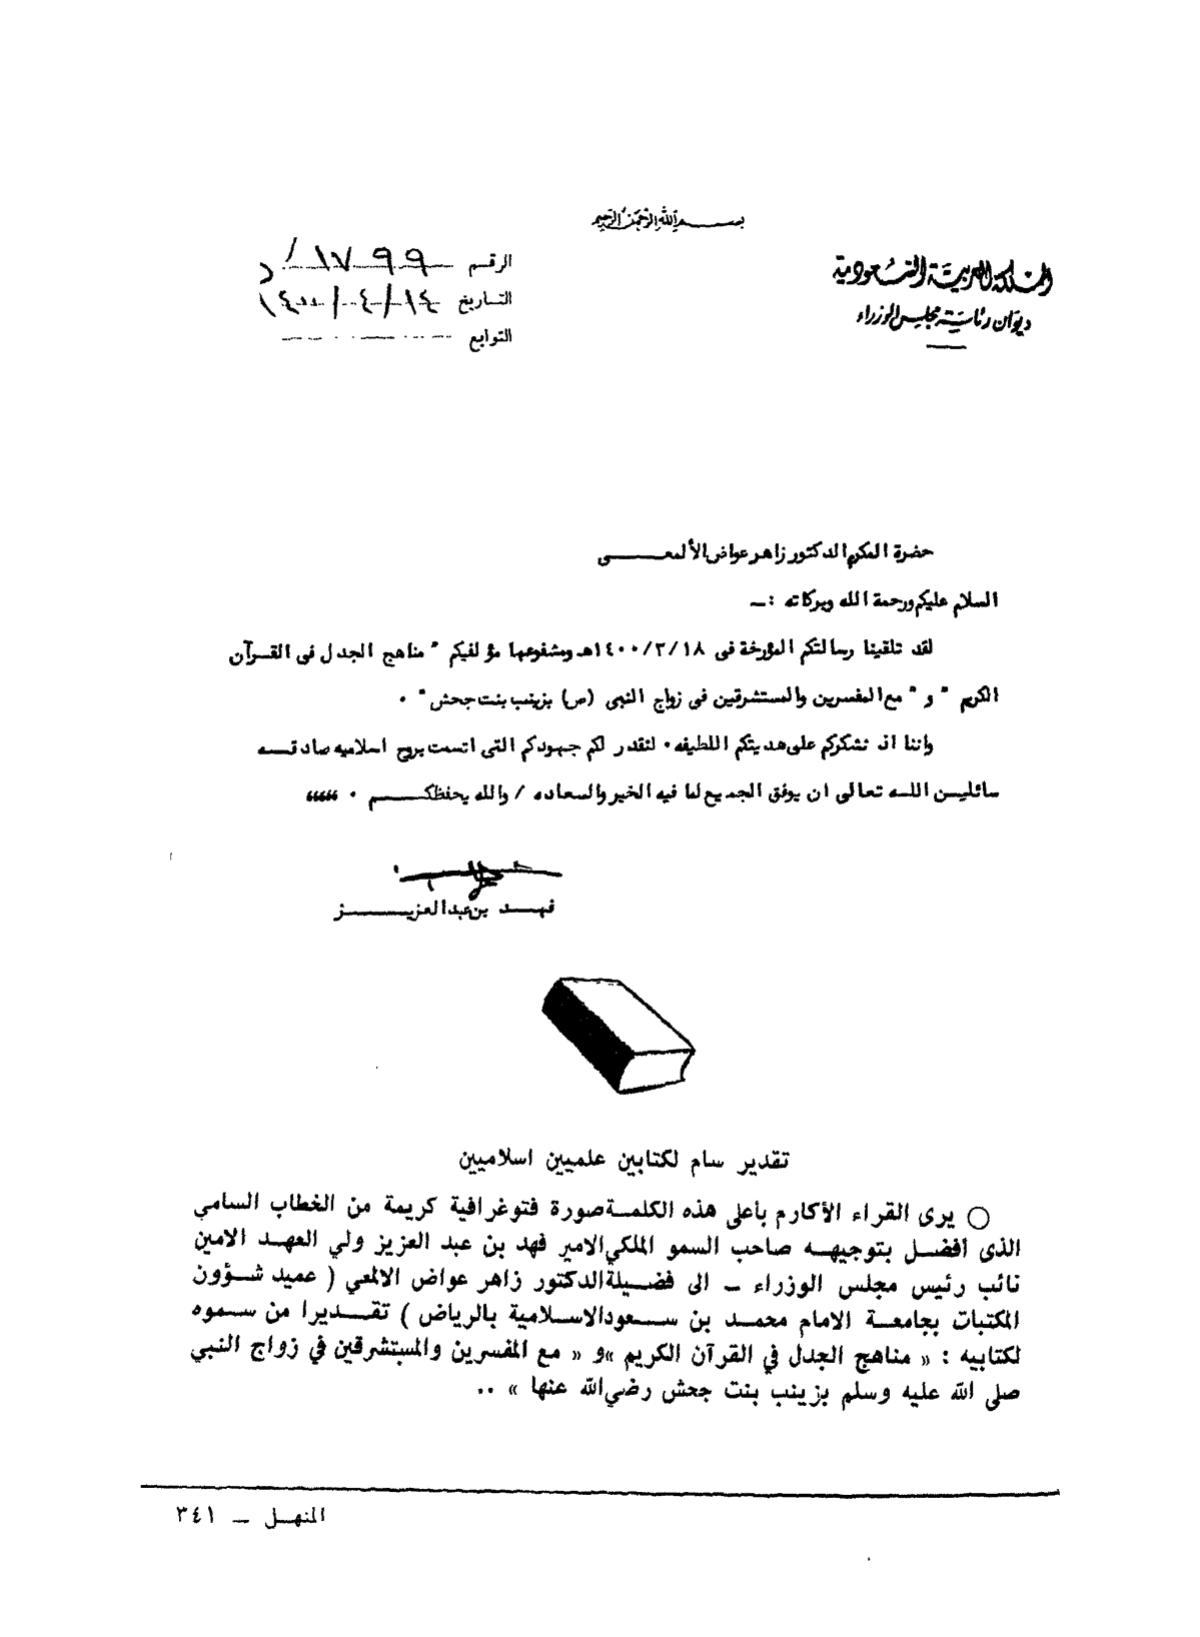 بسم الله الرحمن الرحيم
المملكة العربية السعودية
ديوان رئاسة مجلس الوزراء
الرقم ١٧٩٩/د
التاريخ ١٤/٤/١٤٠٠
التوابع
حضرة المكرم الدكتور زاهر عواض الألمعى
السلام عليكم ورحمة الله وبركاته :ـ
لقد تلقينا رسالتكم المؤرخة فى ١٤٠٠/٢/١٨هـ ومشفوعها مؤلفيكم " مناهج الجدل فى القرآن
الكريم " و " مع المفسرين والمستشرقين فى زواج النبى (ص) بزينب بنت جحش " ٠
واننا اذ نشكركم على هديتكم اللطيفه ٠ لنقدر لكم جهودكم التى اتسمت بروح اسلاميه صادقه
سائلين الله تعالى ان يوفق الجميع لما فيه الخير والسعاده / والله يحفظكم ٠ ،،،،،
فهد بن عبد العزيز
تقدير سام لكتابين علميين اسلاميين
○ يرى القراء الأكارم بأعلى هذه الكلمة صورة فتوغرافية كريمة من الخطاب السامي
الذى أفضل بتوجيهه صاحب السمو الملكي الامير فهد بن عبد العزيز ولي العهد الامين
نائب رئيس مجلس الوزراء ـ الى فضيلة الدكتور زاهر عواض الالمعي ( عميد شؤون
المكتبات بجامعة الامام محمد بن سعود الاسلامية بالرياض ) تقديرا من سموه
لكتابيه : « مناهج الجدل في القرآن الكريم » و « مع المفسرين والمستشرقين في زواج النبي
صلى الله عليه وسلم بزينب بنت جحش رضي الله عنها » ..
المنهل ـ ٣٤١